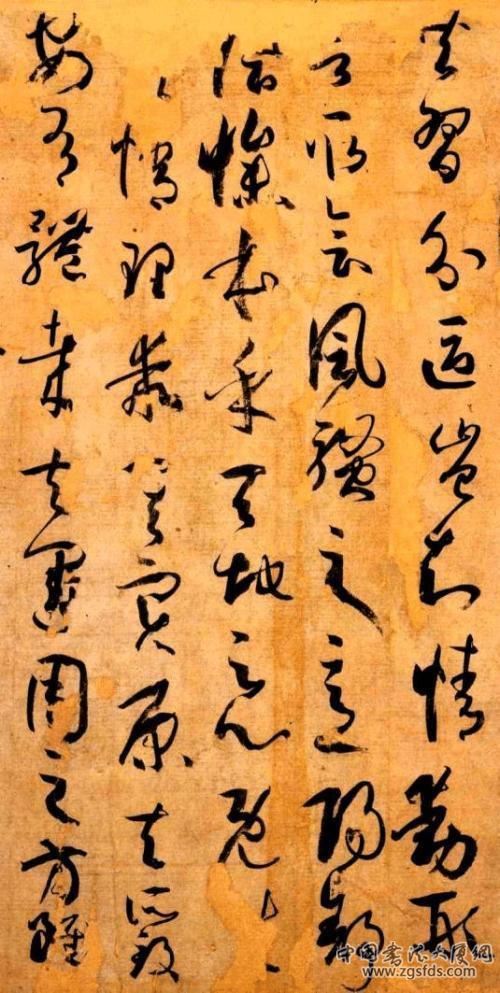 失習分區豈知情動形
言取會風騷之意陽舒
陰慘本乎天地之心既失
其情理乖其實原夫所致
安有體哉夫運用之方雖
中國書法大廈網
www.zgsfds.com